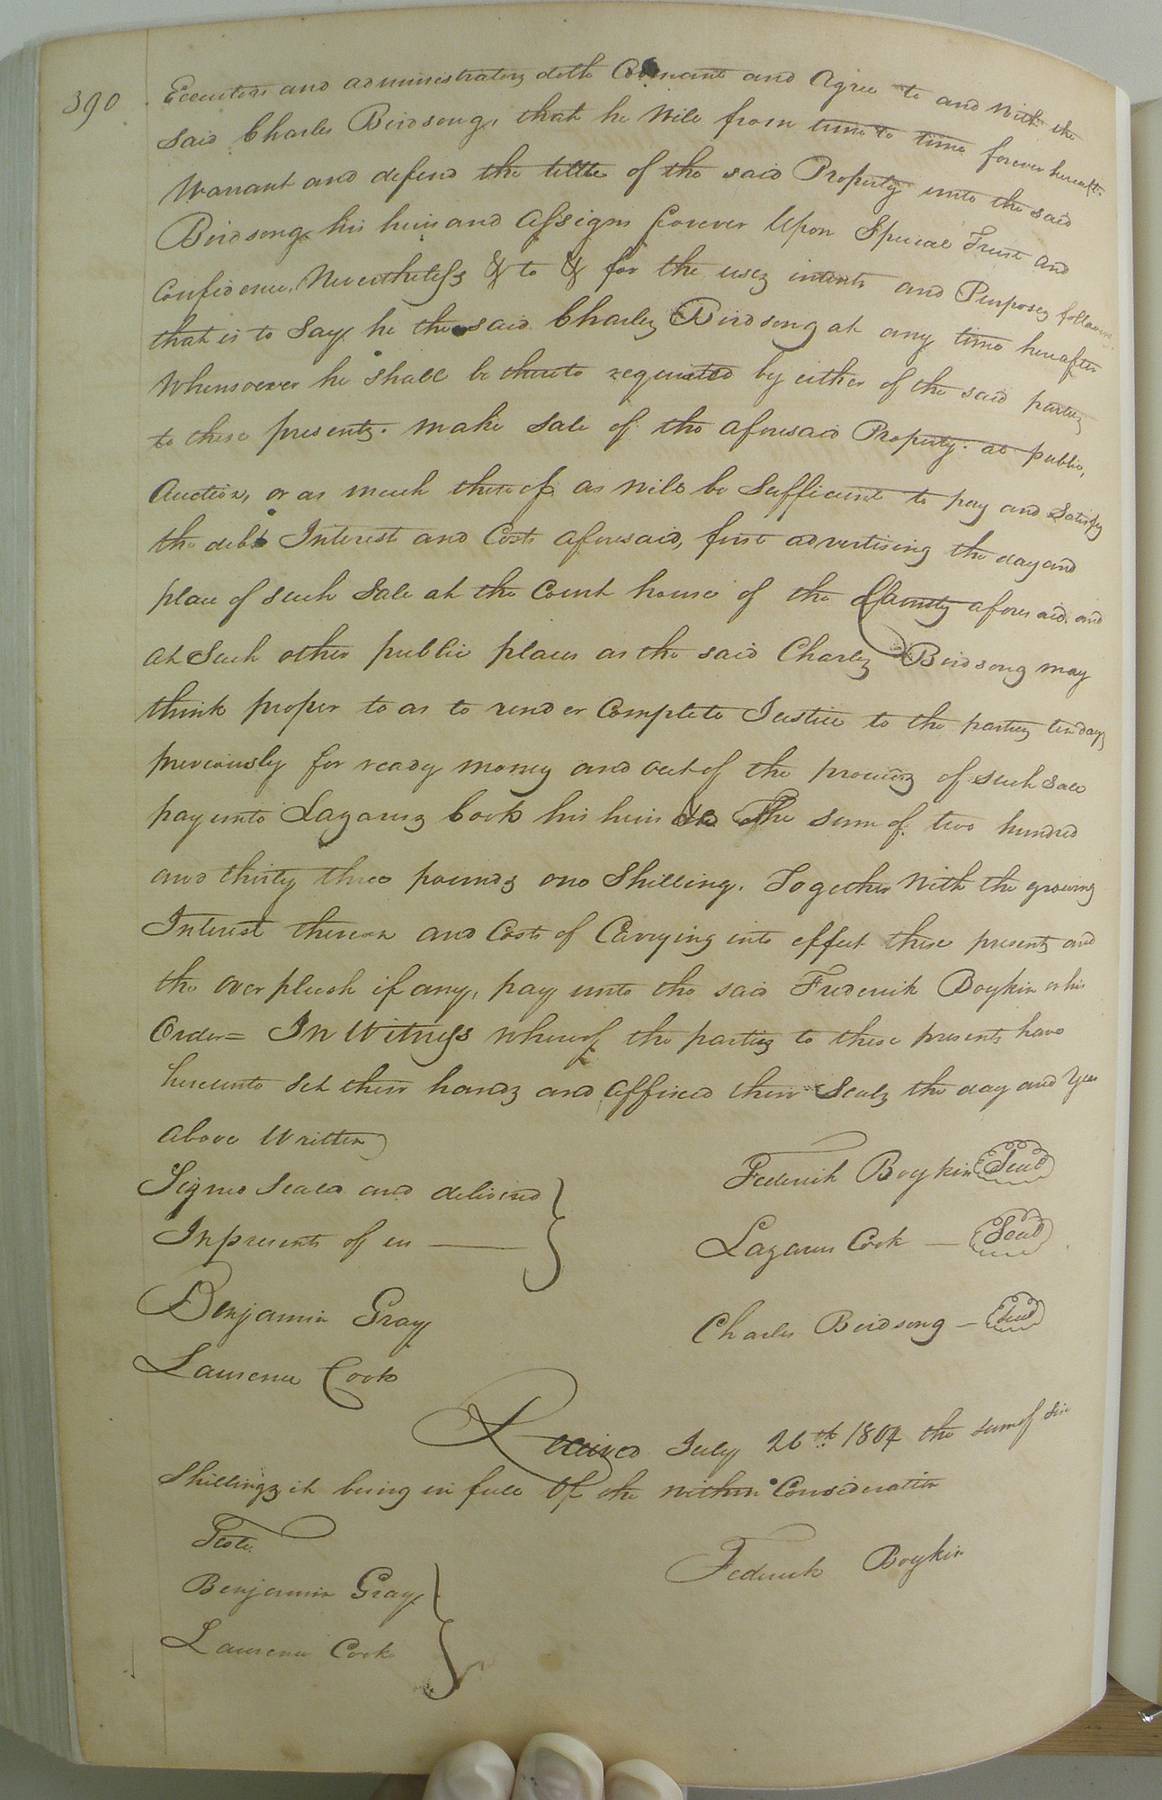 390
Executors and administrators doth Covenant and Agree to and with the
Said Charles Birdsong, that he will from time to time forever hereaft.
Warrant and defend the tittle of the said Property unto the said
Birdsong his heirs and Assigns forever Upon Special Trust and
Confidence, Nevertheless & to & for the uses intents and Purposes following
that is to Say he the said Charles Birdsong at any time hereafter
Whensoever he shall be thereto required by either of the said parties
to these presents. make Sale of the aforesaid Property. at public,
Auction, or as much thereof as will be Sufficient to pay and Satisfy
the debt Interest and Costs aforesaid, first advertising the day and
place of such Sale at the Court house of the County aforesaid. and
at Such other public places as the said Charles Birdsong may
think proper to as to render Complete Justice to the parties ten days
previously for ready money and out of the proceeds of such Sale
pay unto Lazarus Cook his heirs &c The sum of two hundred
and thirty three pounds one Shilling. Together with the growing
Interest thereon and Costs of Carrying into effect these presents and
the over plush if any, pay unto the said Frederick Boykin or his
Order= In Witness whereof the parties to these presents have
hereunto Set their hands and affixed their Seals the day and Year
above Written
Signed Seald and delivered
In presents of us
Federick Boykin Seal
Lazarus Cook — Seal
Benjamin Gray
Charles Birdsong — Seal
Laurence Cook
Received July 26th 1804 the sum of six
Shillings it being in full Of the within Consideration
Teste.
Federick Boykin
Benjamin Gray
Laurence Cook